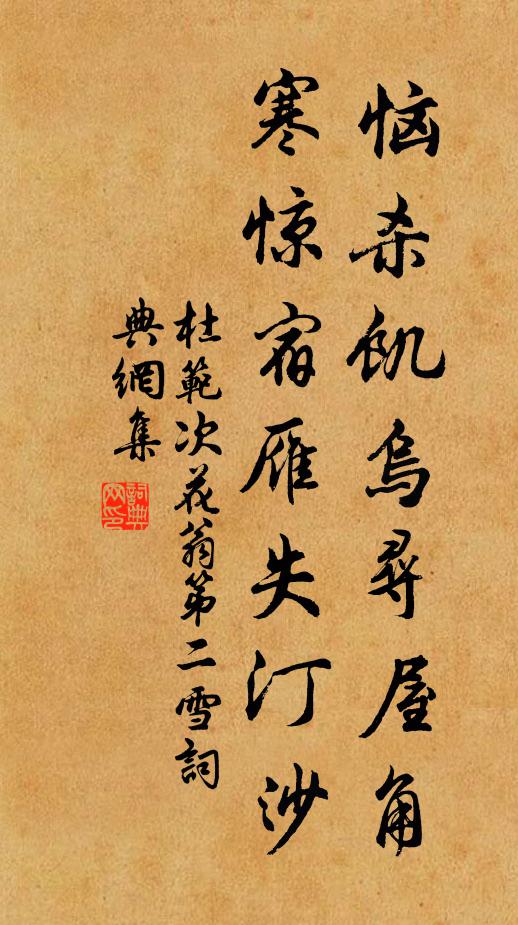 恼杀飢烏尋屋角
寒惊宿雁失汀沙
杜範次花翁第二雪詞
典網集
詞典